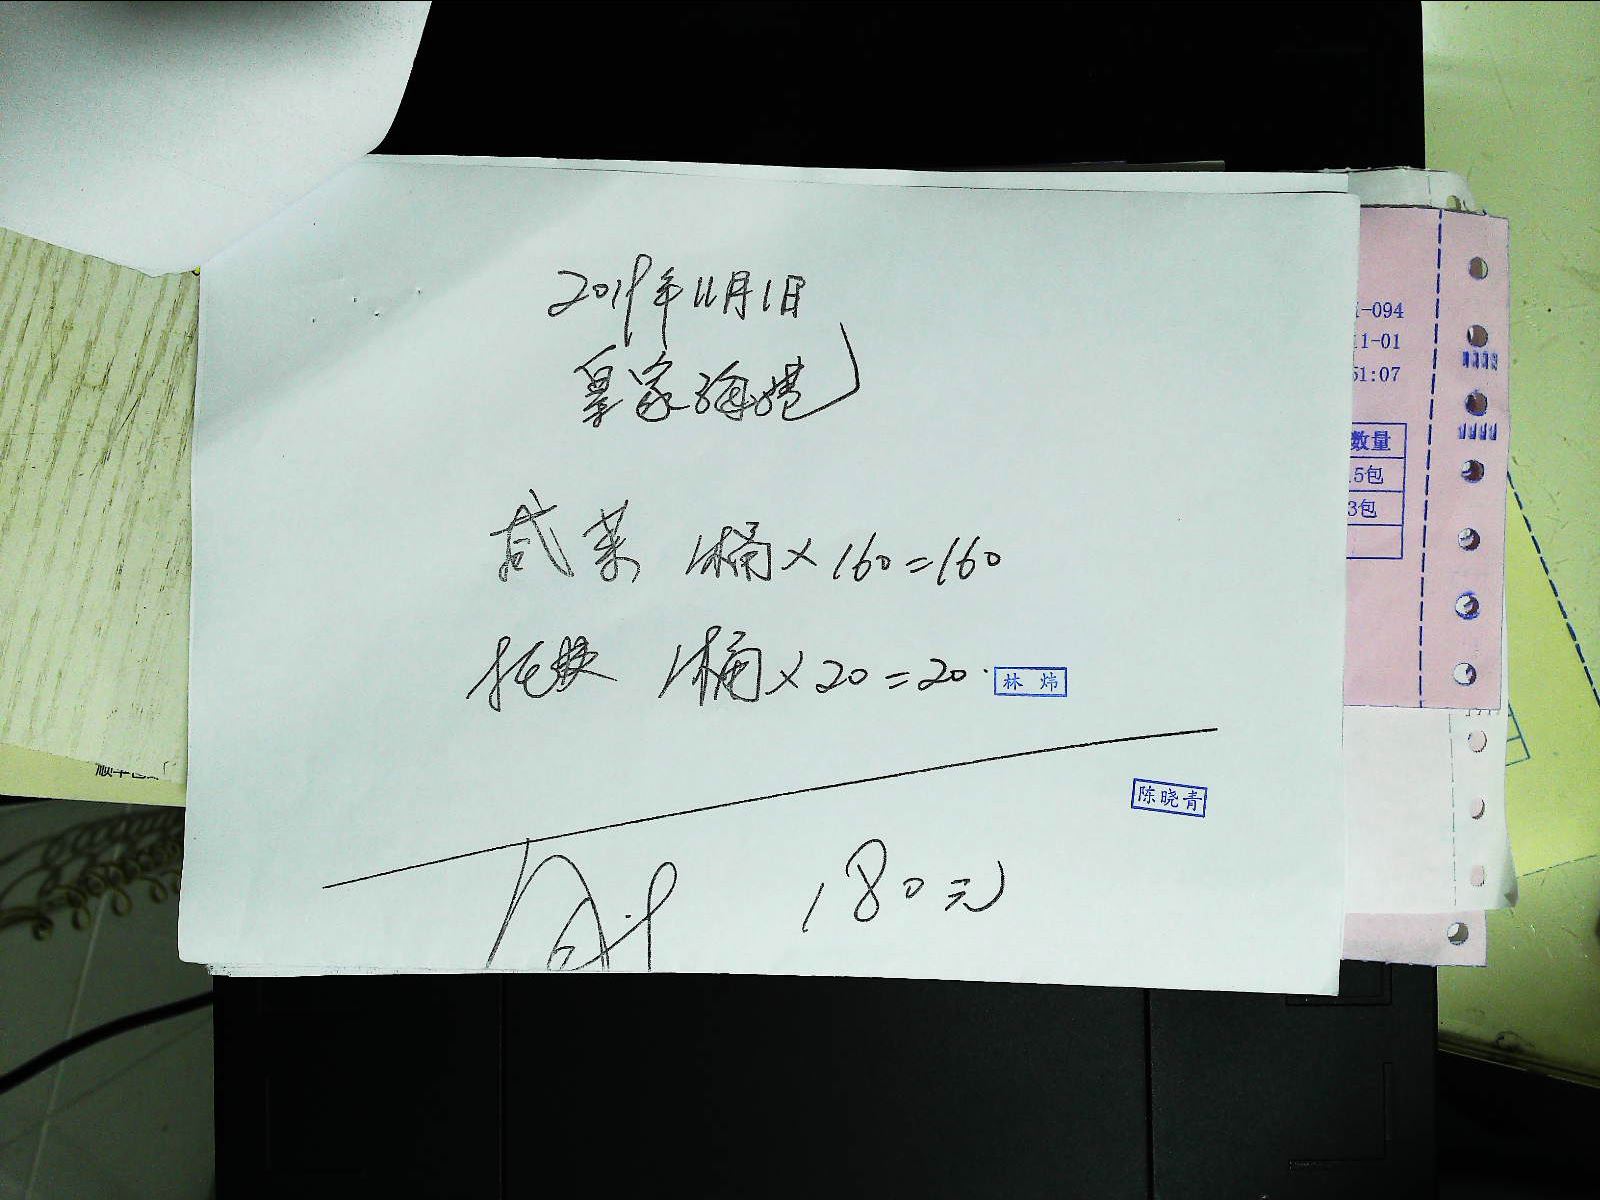 2019年11月1日
皇家海港
咸菜 1桶×160=160
托运 1桶×20=20
林炜
陈晓青
合计 180元
1-094
11-01
51:07
数量
.5包
3包